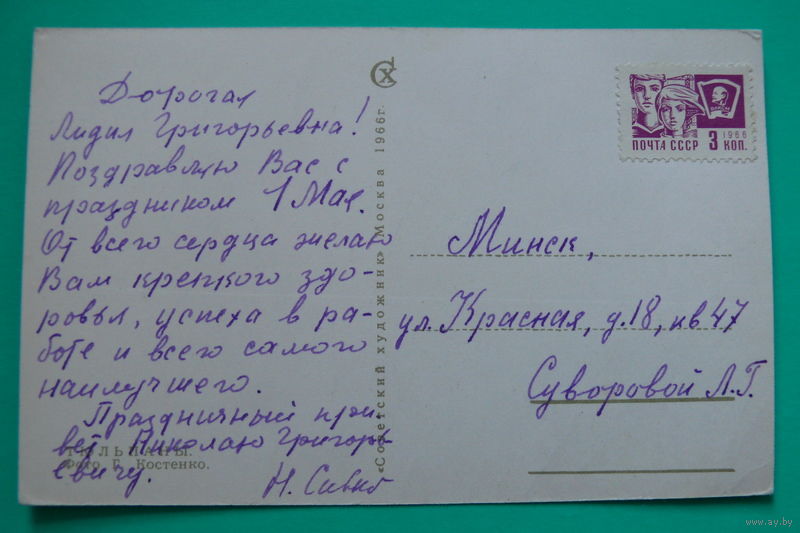 Дорогая
Лидия Григорьевна!
Поздравляю Вас с
праздником 1 Мая.
От всего сердца желаю
Вам крепкого здо-
ровья, успеха в ра-
боте и всего самого
наилучшего.
Праздничный при-
вет Николаю Григорь-
евичу.
Н.
ТЮЛЬПАНЫ.
Фото Б. Костенко.
«Советский художник» Москва 1966г.
СХ
1966
ПОЧТА СССР 3 КОП.
Минск,
ул. Красная, д.18, кв 47
Суворовой Л.Г.
www.ay.by